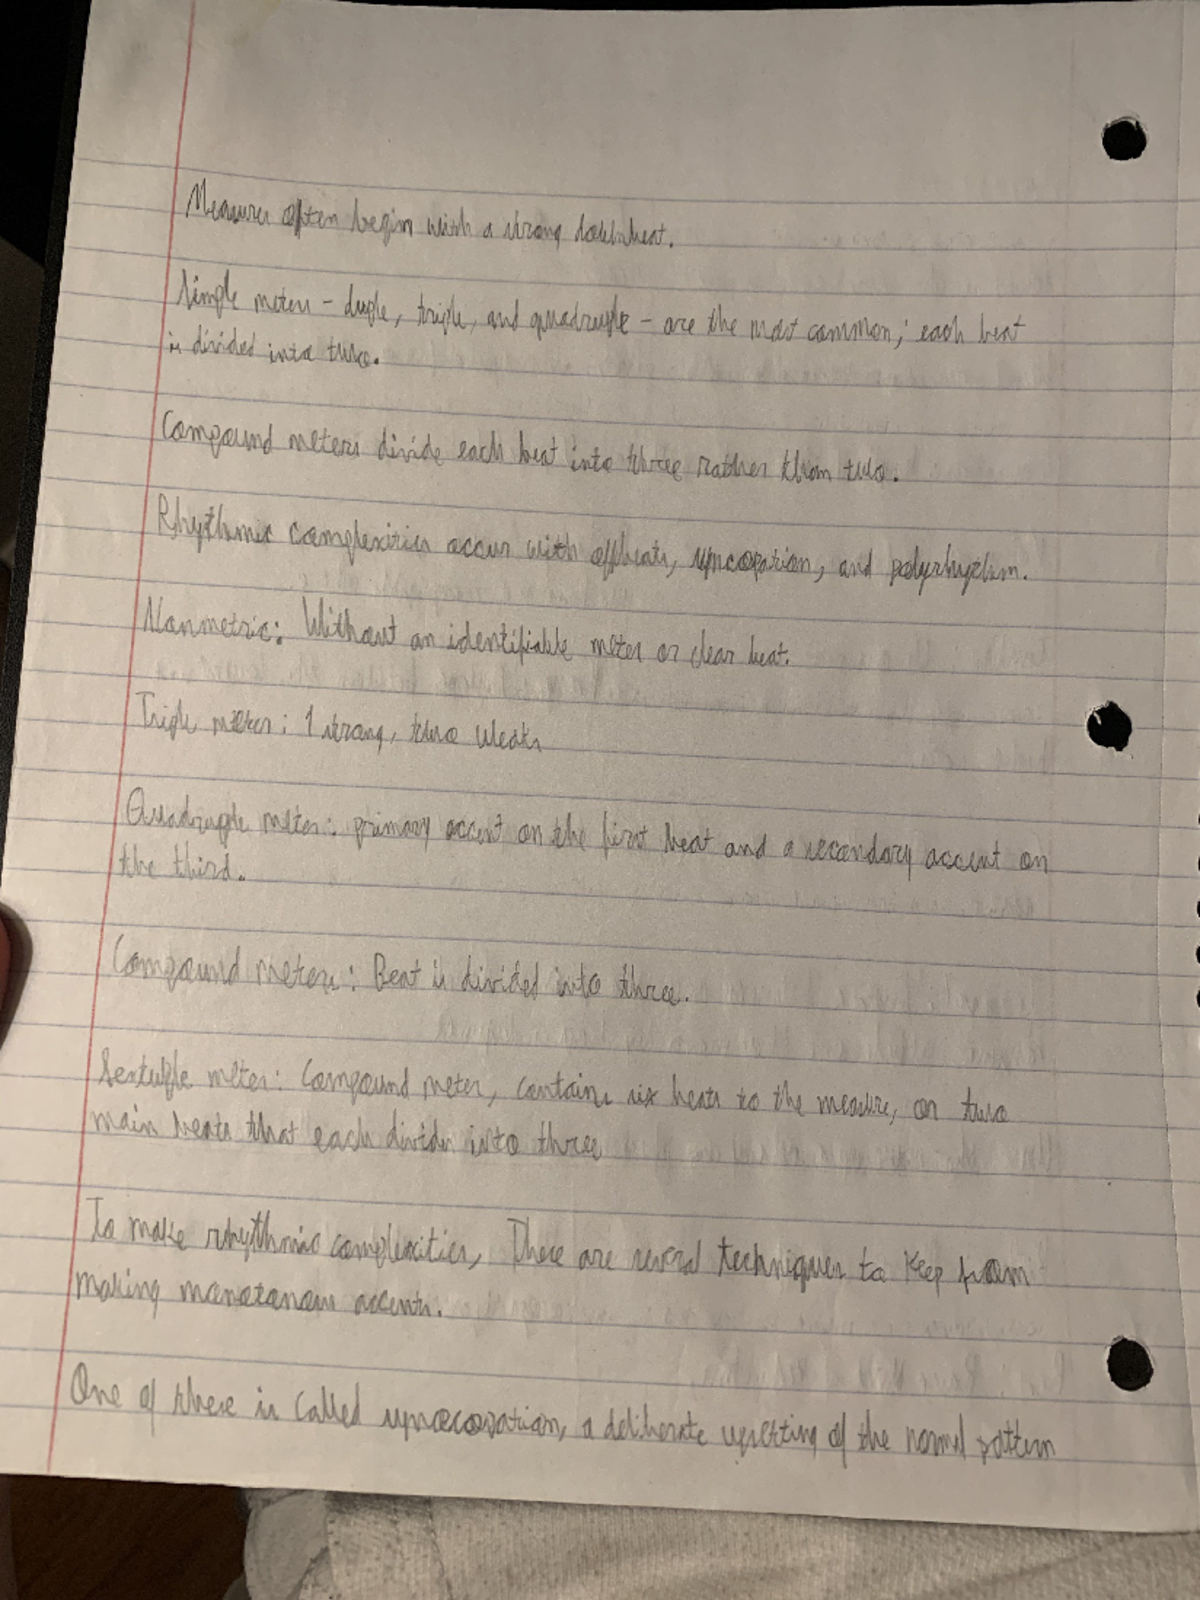 Measures often begin with a strong downbeat.
Simple meters - duple, triple, and quadruple - are the most common; each beat
is divided into two.
Compound meters divide each beat into three rather than two.
Rhythmic complexities occur with offbeats, syncopation, and polyrhythm.
Nonmetric: Without an identifiable meter or clear beat.
Triple meter: 1 strong, two weak
Quadruple meter: primary accent on the first beat and a secondary accent on
the third.
Compound meters: Beat is divided into three.
Sextuple meter: Compound meter, contains six beats to the measure, or two
main beats that each divides into three
To make rhythmic complexities, There are several techniques to keep from
making monotonous accents.
One of these is called syncopation, a deliberate upsetting of the normal pattern